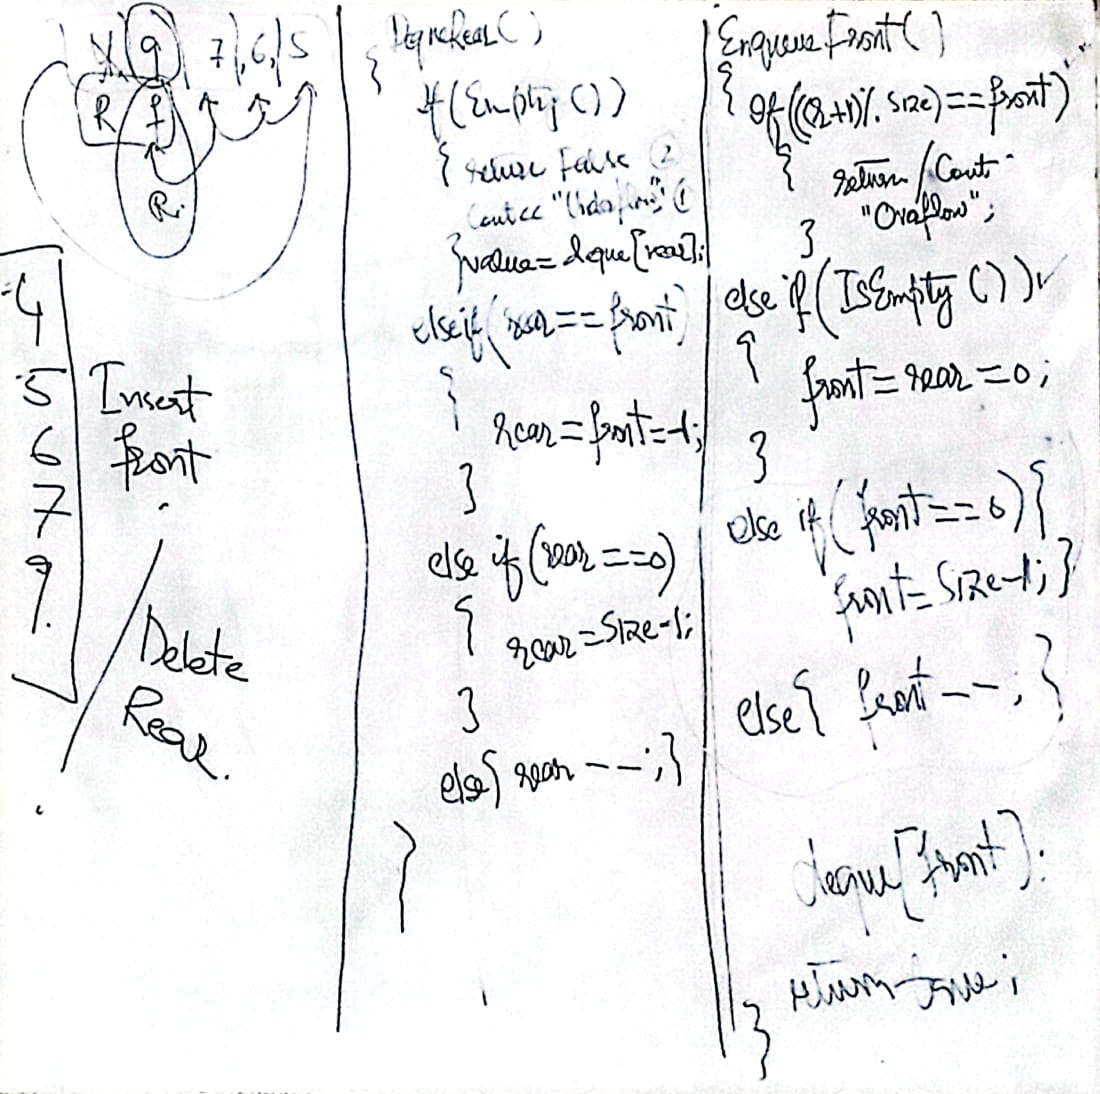 9 7 , 6 , 5
R f
R.
4
5
6
7
9.
Insert
front
Delete
Rear.
{
If (Empty ())
{ return False ②
Cout << "Underflow"; ①
} value = deque[rear];
else if (rear == front)
{
rear = front = -1;
}
else if (rear == 0)
{ rear = Size-1;
}
else { rear --; }
}
Enqueue Front ()
{ If ((r+1) % Size) == front)
{ return / Cout
"Overflow";
}
else if (IsEmpty ())
{ front = rear = 0;
}
else if (front == 0) {
front = Size-1; }
else { front --; }
deque[front]:
return true;
}